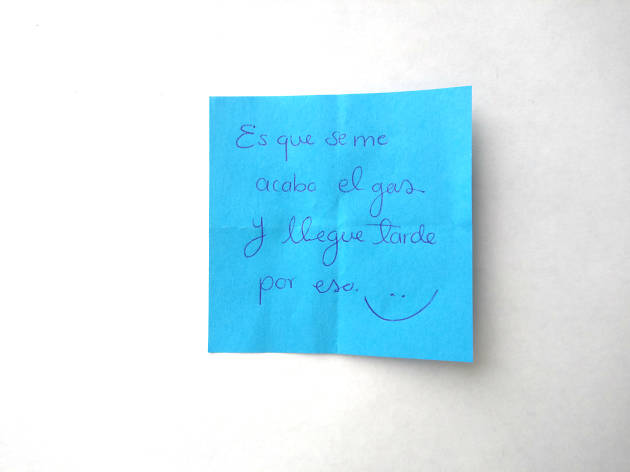 Es que se me
acabo el gas
y llegue tarde
por eso.